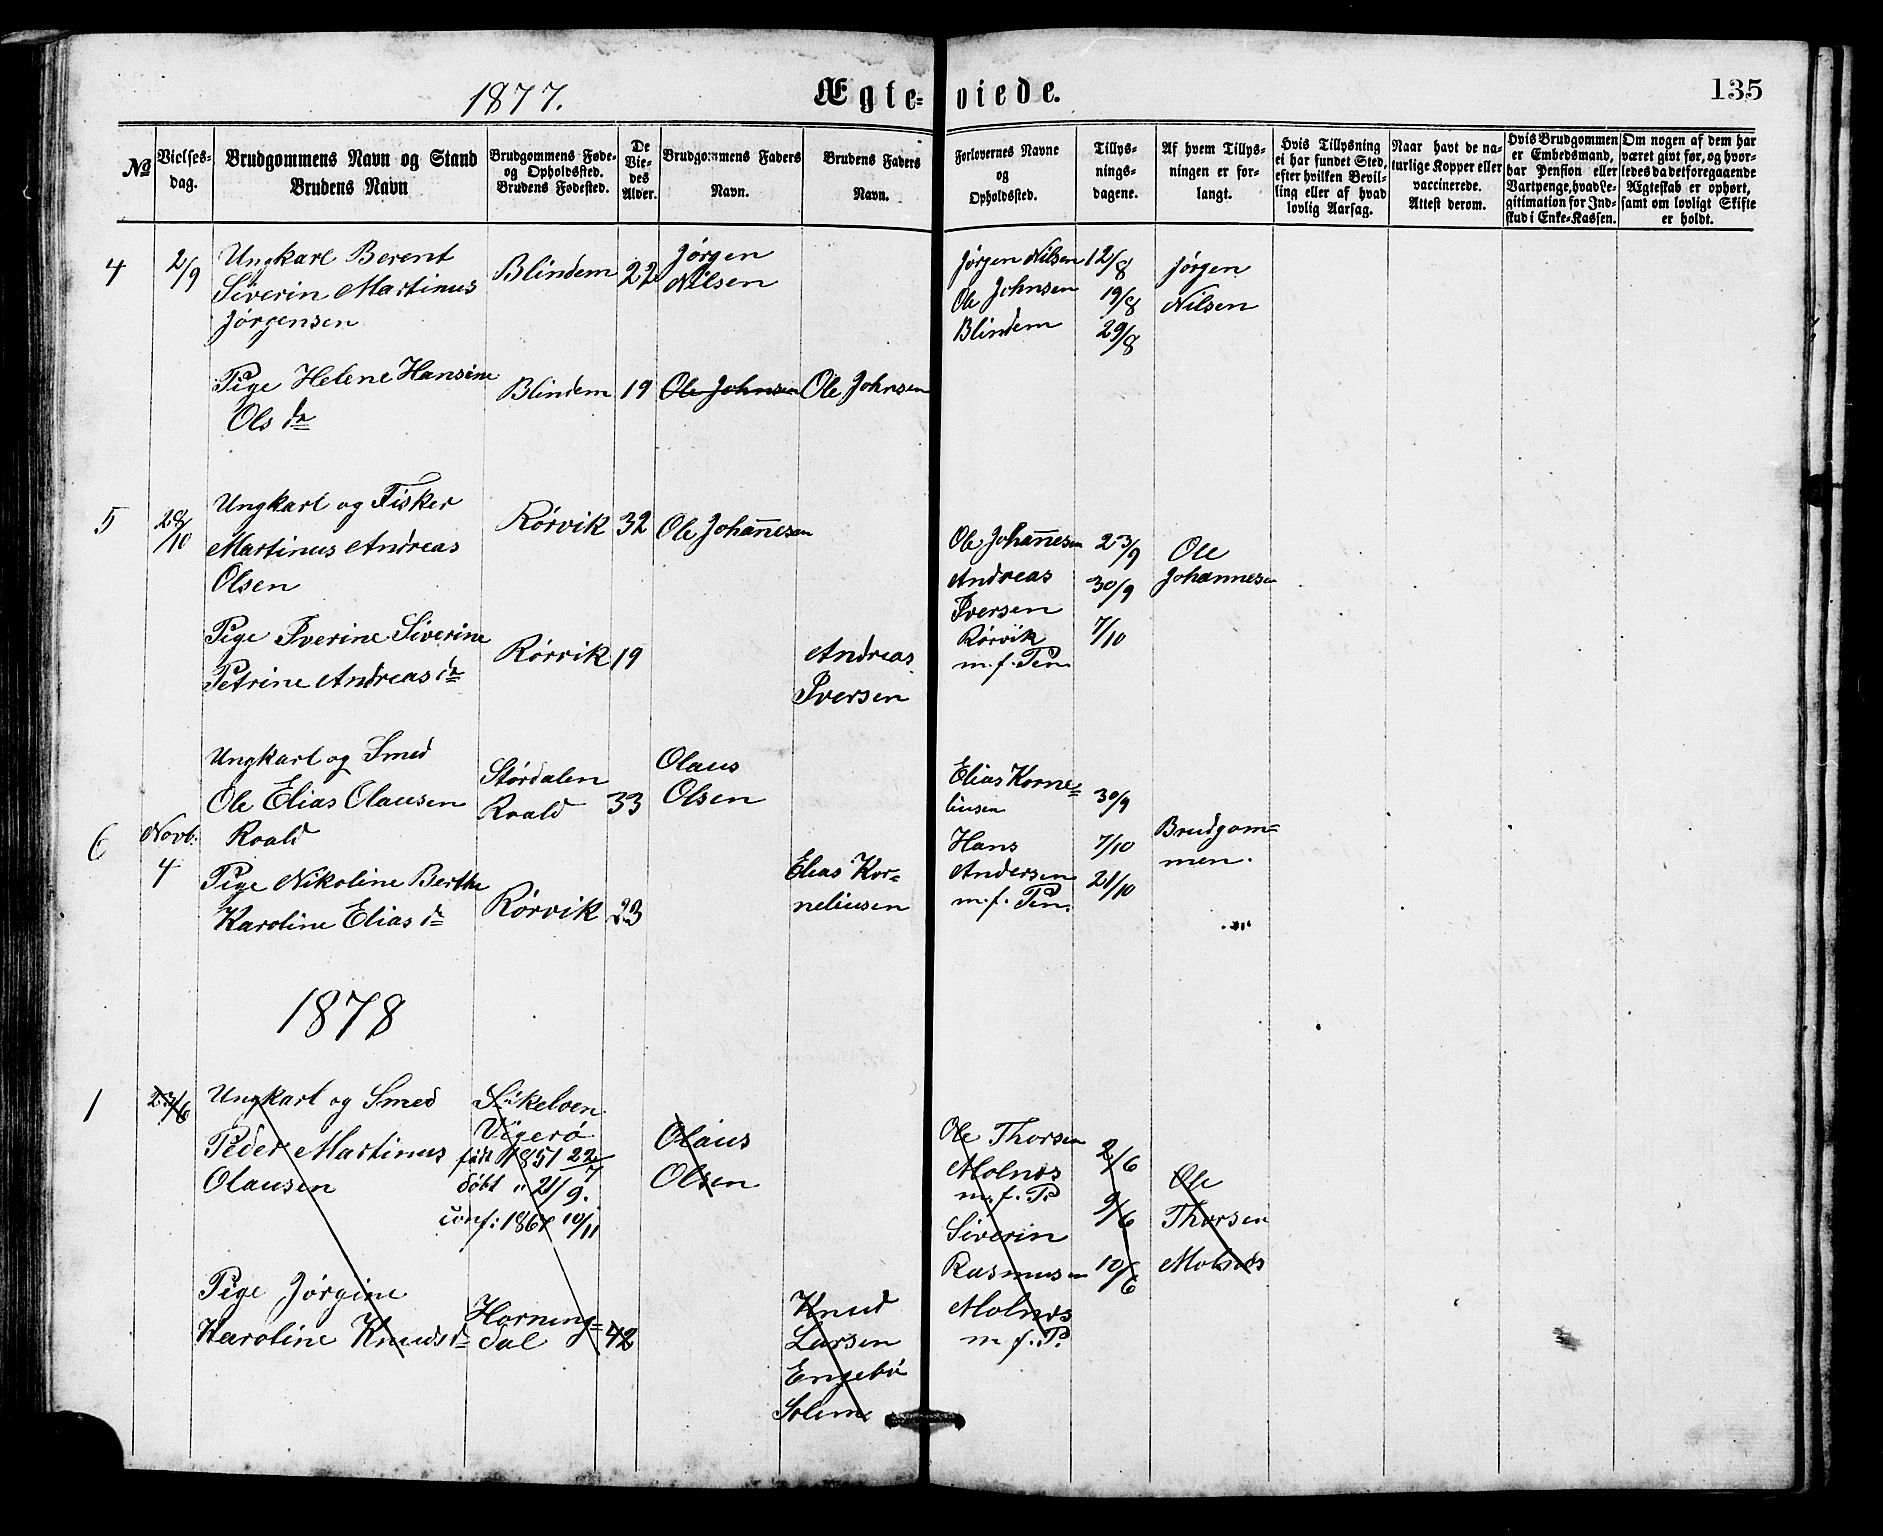 1877.
Ægte=viede.
135
№
Vielses-
dag.
Brudgommens Navn og Stand
Brudens Navn
Brudgommens Føde-
og Opholdssted.
Brudens Fødested.
De
Vie-
des
Alder.
Brudgommens Faders
Navn.
Brudens Faders
Navn.
Forlovernes Navne
og
Opholdssted.
Tillys-
nings-
dagene.
Af hvem Tillys-
ningen er for-
langt.
Hvis Tillysning
ei har fundet Sted,
efter hvilken Bevil-
ling eller af hvad
lovlig Aarsag.
Naar havt de na-
turlige Kopper eller
vaccinerede.
Attest derom.
Hvis Brudgommen
er Embedsmand,
har Pension eller
Vartpenge, hvad Le-
gitimation for Ind-
skud i Enke-Kassen.
Om nogen af dem har
været givt før, og hvor-
ledes da det foregaaende
Ægteskab er ophørt,
samt om lovligt Skifte
er holdt.
4
2/9
Ungkarl Berent
Siverin Martinus
Jørgensen
Blindem
22
Jørgen
Nilsen
Jørgen Nilsen
Ole Johnsen
Blindem
12/8
19/8
29/8
Jørgen
Nilsen
Pige Helene Hansine
Ols dr
Blindem
19
Ole Johnsen
Ole Johnsen
5
28/10
Ungkarl og Fisker
Martinus Andreas
Olsen
Rörvik
32
Ole Johan̄esen
Ole Johan̄esen
Andreas
Iversen
Rörvik
m. f. Pen
23/9
30/9
7/10
Ole
Johannesen
Pige Iverine Siverine
Petrine Andreas dr
Rörvik
19
Andreas
Iversen
6
Novb.
4
Ungkarl og Smed
Ole Elias Olausen
Roald
Stórdalen
Roald
33
Olaus
Olsen
Elias Korne=
liusen
Hans
Andersen
m. f. Pen.
30/9
7/10
21/10
Brudgom=
men.
Pige Nikoline Berthe
Karoline Elias dr
Rörvik
23
Elias Kor=
neliusen
1878
1
23/6
Ungkarl og Smed
Peder Martinus
Olausen
Vigerö
født 1851 22/7
döbt " 21/9.
conf: 1867 10/11
Olaus
Olsen
Ole Thorsen
Molnes
m. f. P.
Siverin
Rasmusen
Molnes
m. f. P.
2/6
9/6
10/6
Ole
Thorsen
Molnes
Pige Jørgine
Karoline Knuds dr
Horning=
dal
42
Knud
Larsen
Engebö
Solem